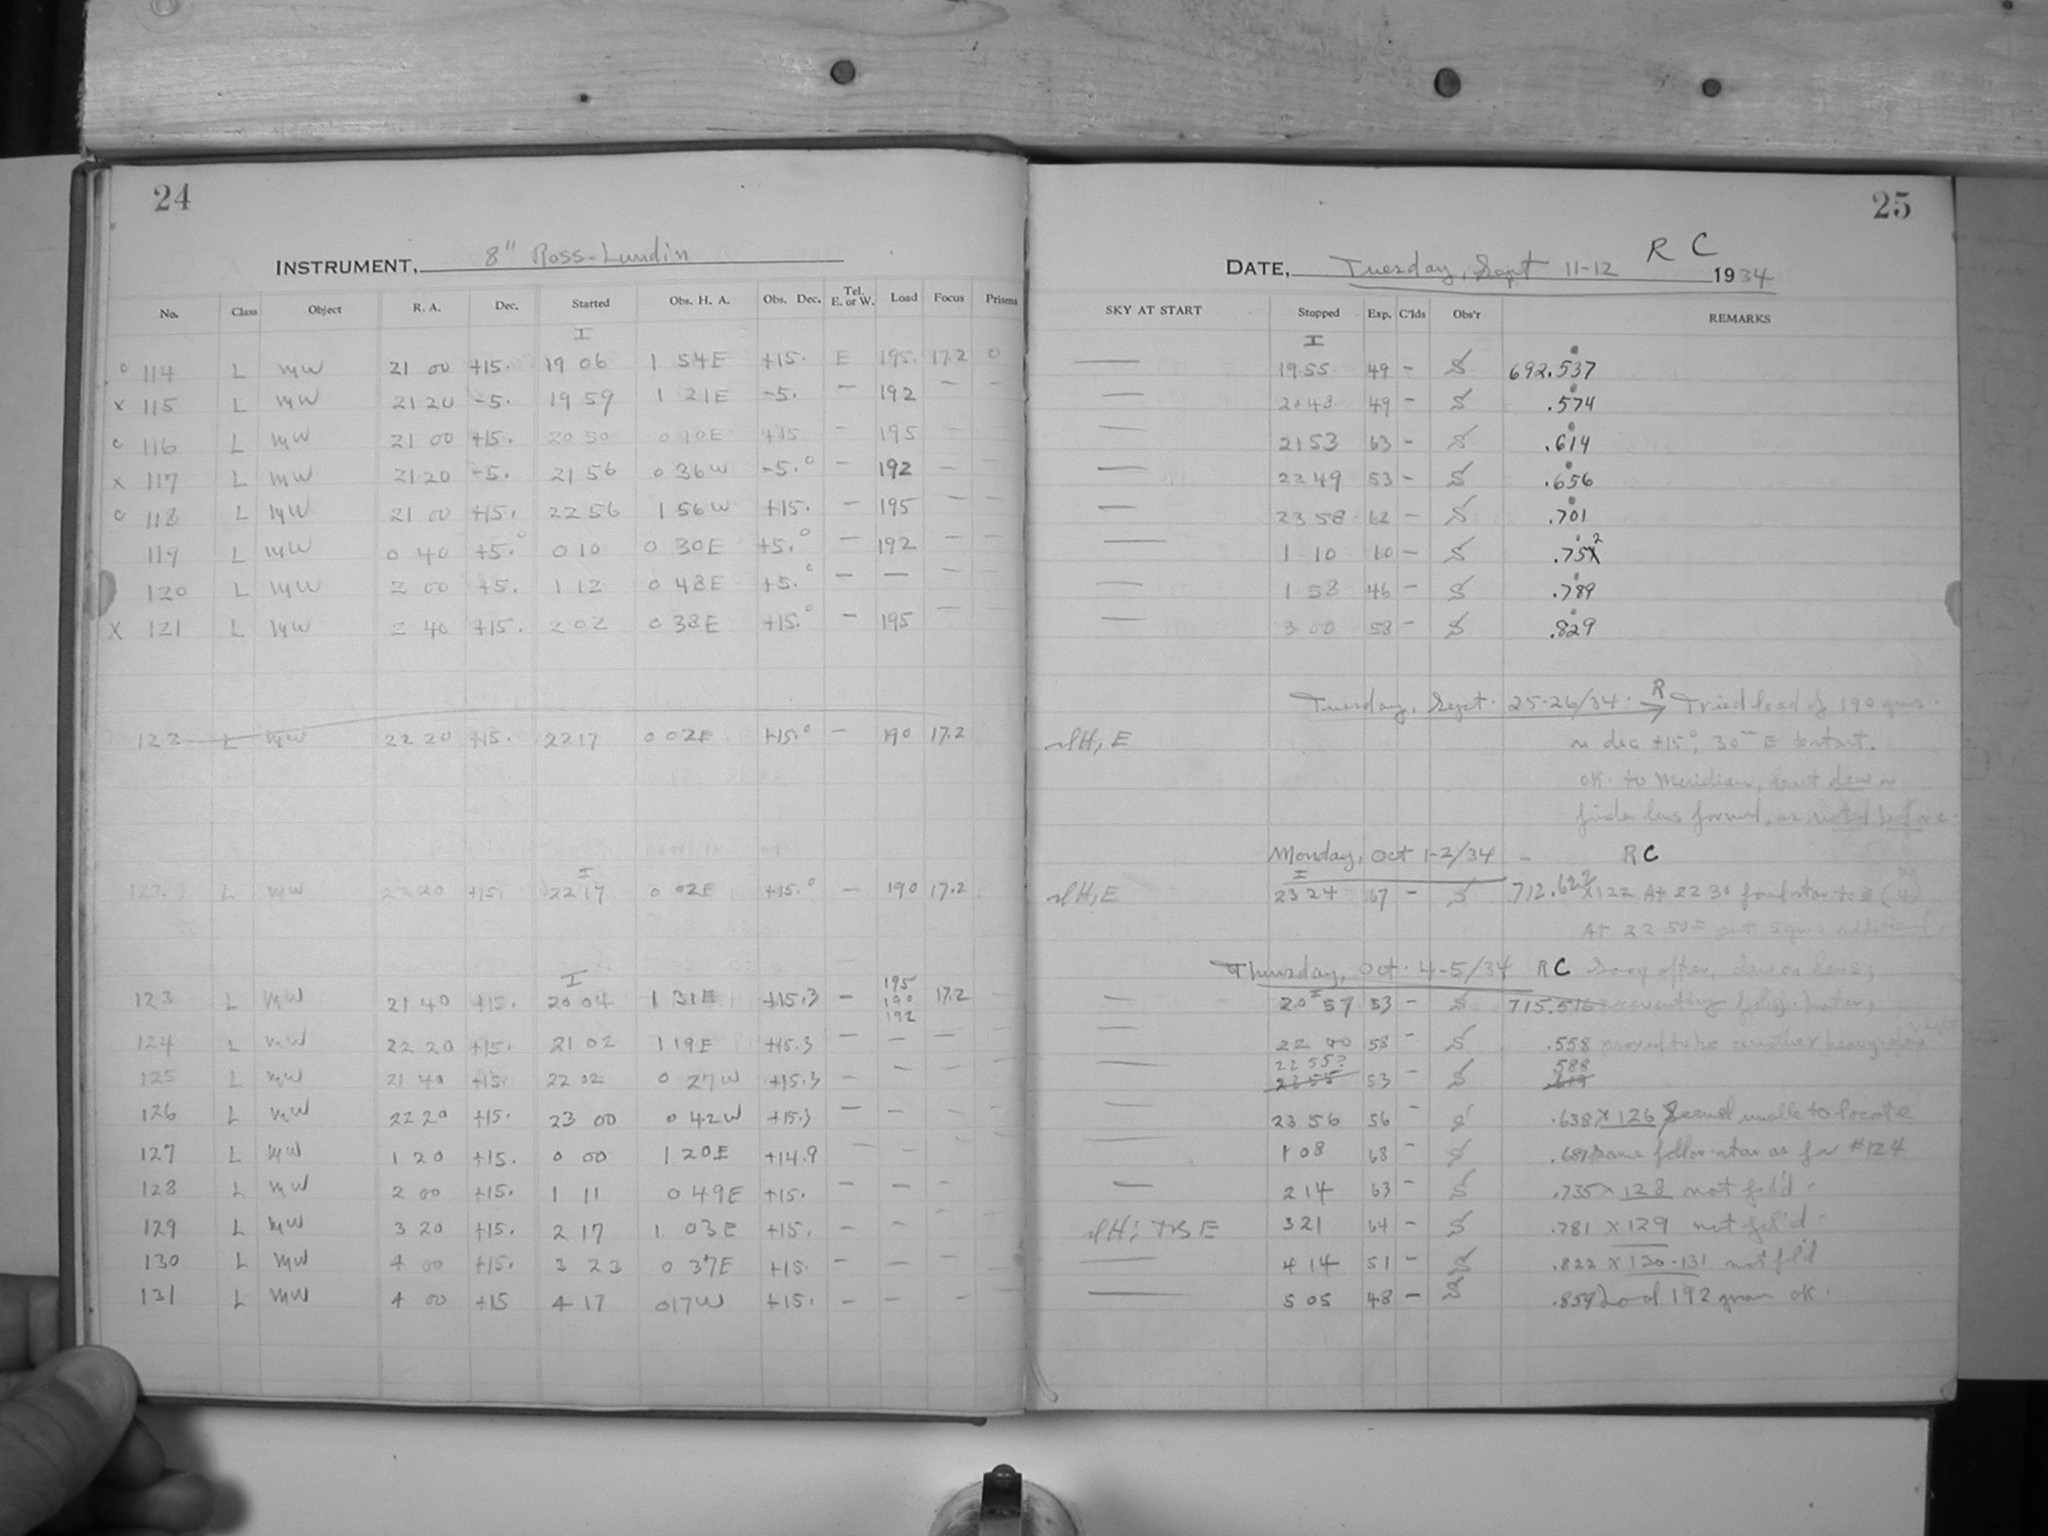 24
INSTRUMENT, 8" Ross-Lundin
No. Class Object R. A. Dec. Started Obs. H. A. Obs. Dec. Tel. E. or W. Load Focus Prisms
I
o 114 L MW 21 00 +15. 19 06 1 54E +15. E 195. 17.2 0
x 115 L MW 21 20 -5. 19 59 1 21E -5. — 192 — —
o 116 L MW 21 00 +15. 20 50 0 10E +15 — 195 — —
x 117 L MW 21 20 -5. 21 56 0 36W -5.° — 192 — —
o 118 L MW 21 00 +15. 22 56 1 56W +15. — 195 — —
119 L MW 0 40 +5.° 0 10 0 30E +5.° — 192 — —
120 L MW 2 00 +5. 1 12 0 48E +5.° — — — —
X 121 L MW 2 40 +15. 2 02 0 38E +15.° — 195 — —
122 L MW 22 20 +15. 22 17 0 02E +15.° — 190 17.2
I
L MW 22 20 +15. 22 17 0 02E +15.° — 190 17.2
I
123 L MW 21 40 +15. 20 04 1 31E +15.3 — 195 190 192 17.2 —
124 L MW 22 20 +15. 21 02 1 19E +15.3 — — —
125 L MW 21 40 +15. 22 02 0 27W +15.3 — — —
126 L MW 22 20 +15. 23 00 0 42W +15.3 — — — —
127 L MW 1 20 +15. 0 00 1 20E +14.9 — — — —
128 L MW 2 00 +15. 1 11 0 49E +15. — — — —
129 L MW 3 20 +15. 2 17 1 03E +15. — — —
130 L MW 4 00 +15. 3 23 0 37E +15. — — — —
131 L MW 4 00 +15 4 17 0 17W +15. — — — —
25
R C
DATE, Tuesday, Sept 11-12 1934
SKY AT START Stopped Exp. C'lds Obs'r REMARKS
I
— 19 55 49 — S 692.537
— 20 48 49 — S .574
— 21 53 63 — S .614
— 22 49 53 — S .656
— 23 58 62 — S .701
— 1 10 60 — S .752
— 1 58 46 — S .789
— 3 00 58 — S .829
Tuesday, Sept. 25-26/34. R → Tried load of 190 gms.
dec +15°, 30m E to start.
OK. to Meridian, but dew on
finder lens formed, as noted before.
Monday, Oct 1-2/34 — RC
I
H, E 23 24 67 — S 712.622 x122 At 22 30
At 22 50 put 5 gms additional.
Thursday, Oct. 4-5/34 RC dew on lens;
I
— 20 57 53 — S 715.516 preventing
— 22 00 58 — S .558 proved to be another heavy dew night
22 55? 588
— 23 55 53 — S .619
— 23 56 56 — S .638 x 126 Seemed unable to locate
— 1 08 68 — S .687 same star as for #124
— 2 14 63 — S .735 x 128 not fol'd
E 3 21 64 — S .781 x 129 not fol'd
— 4 14 51 — S .822 x 130-131 not fol'd
— 5 05 48 — S .859 Load 192 gram OK.